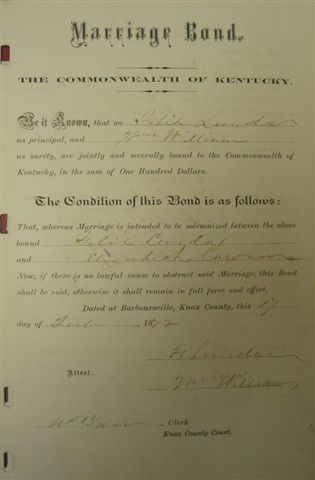 Marriage Bond.
THE COMMONWEALTH OF KENTUCKY.
Be it Known, that we
as principal, and Wm William
as surety, are jointly and severally bound to the Commonwealth of
Kentucky, in the sum of One Hundred Dollars.
The Condition of this Bond is as follows:
That, whereas Marriage is intended to be solemnized between the above
bound Felix
and Elizabeth
Now, if there is no lawful cause to obstruct said Marriage, this Bond
shall be void, otherwise it shall remain in full force and effect.
Dated at Barboursville, Knox County, this 17
day of 1872
Attest:
Wm William
Clerk
Knox County Court.